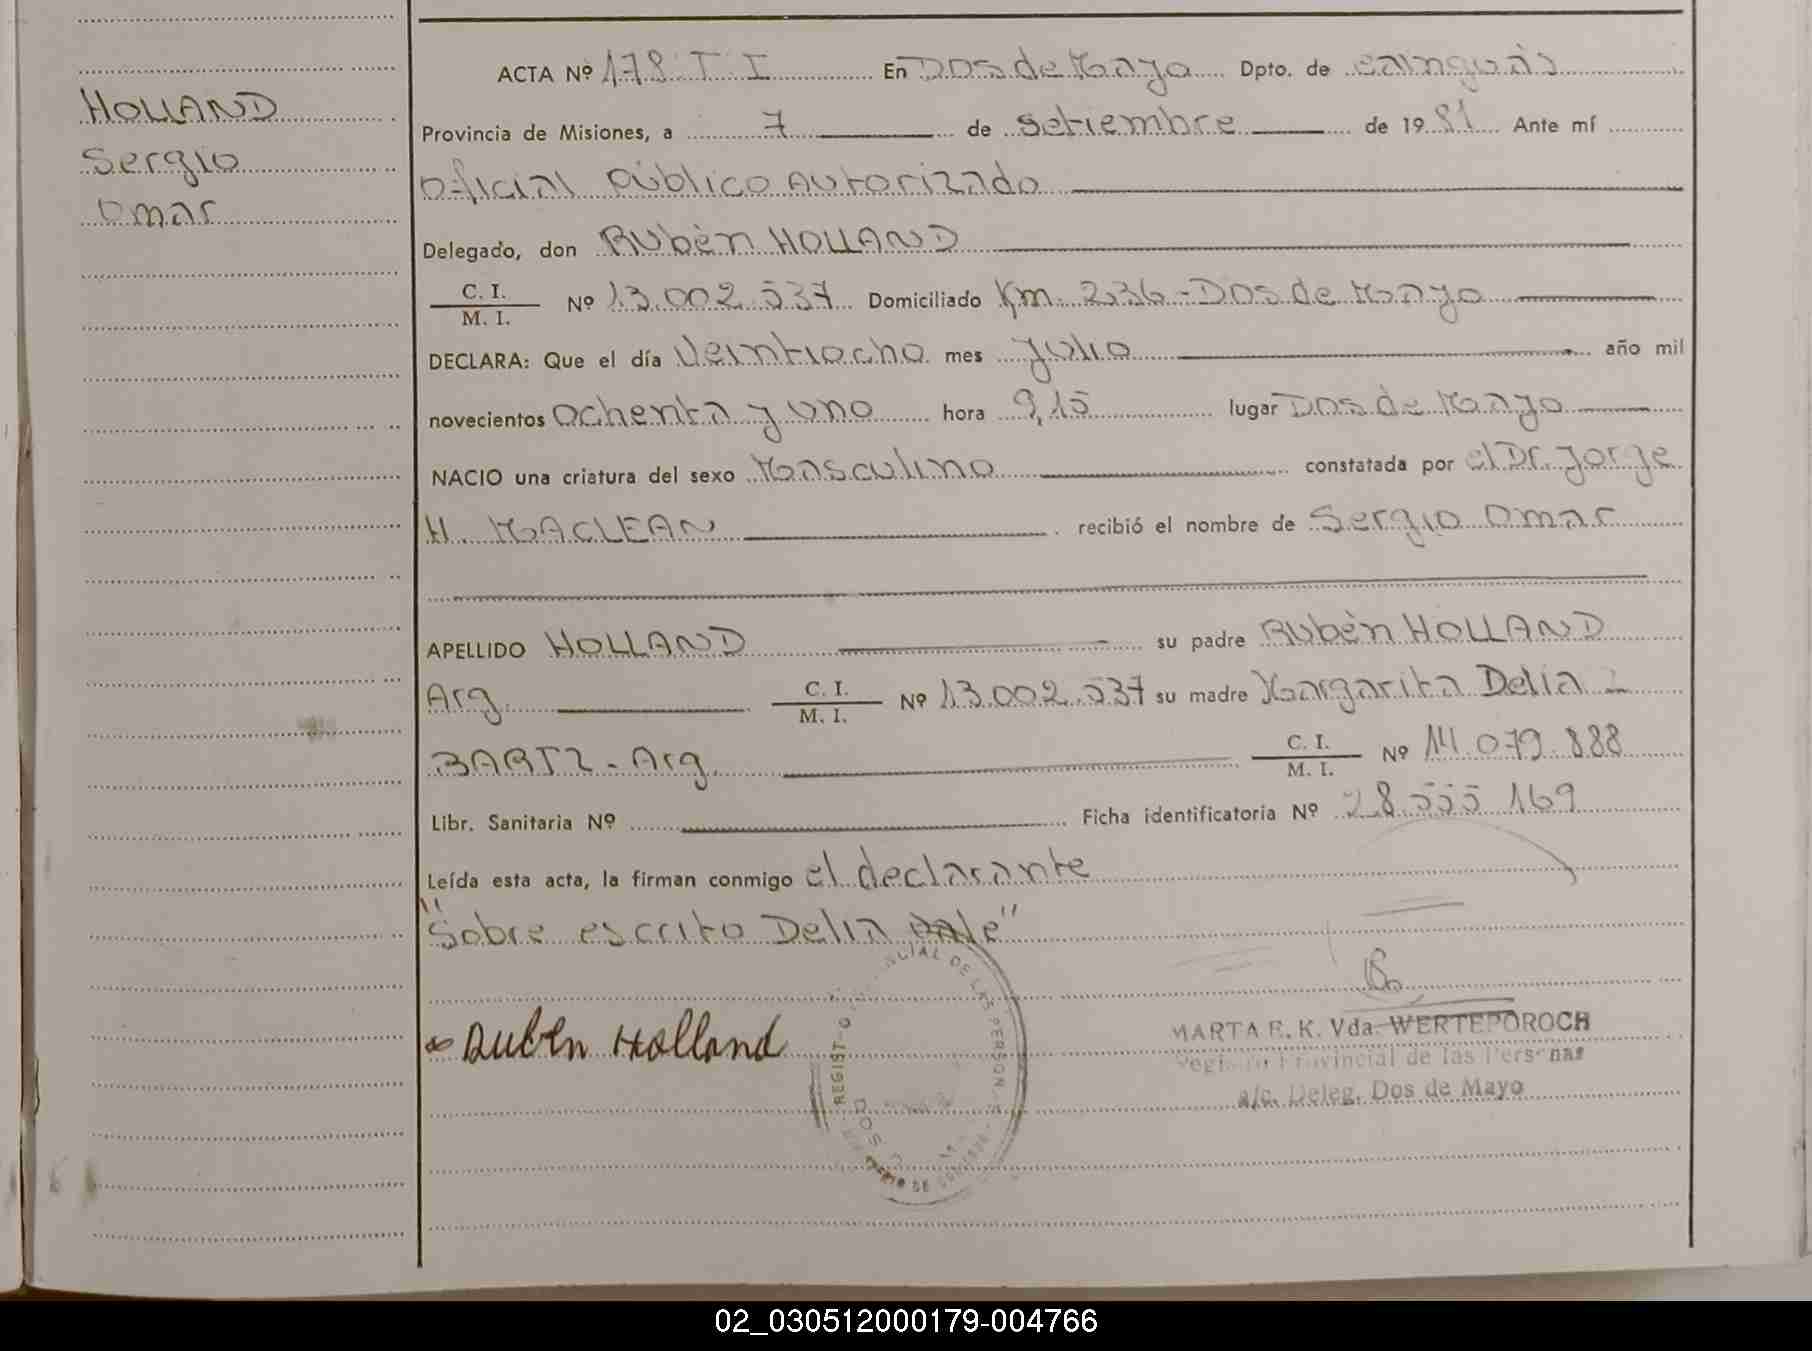 HOLLAND
Sergio
Omar
ACTA Nº 178 T I En Dos de Mayo Dpto. de cainguàs
Provincia de Misiones, a 7 de setiembre de 1981 Ante mí
oficial público autorizado
Delegado, don Rubèn HOLLAND
C. I. / M. I. Nº 13.002.537 Domiciliado Km. 236 - Dos de Mayo
DECLARA: Que el día veintiocho mes julio año mil
novecientos ochenta y uno hora 9,15 lugar Dos de Mayo
NACIO una criatura del sexo Masculino constatada por el Dr. Jorge
H. MACLEAN recibió el nombre de Sergio Omar
APELLIDO HOLLAND su padre Rubèn HOLLAND
Arg. C. I. / M. I. Nº 13.002.537 su madre Margarita Delia
BARTZ - Arg. C. I. / M. I. Nº 14.079.888
Libr. Sanitaria Nº Ficha identificatoria Nº 28.555.169
Leída esta acta, la firman conmigo el declarante
"Sobre escrito Delia Vale"
Ruben Holland
MARTA E. K. Vda. WERTEPOROCH
Registro Provincial de las Personas
a/c. Deleg. Dos de Mayo
02_030512000179-004766